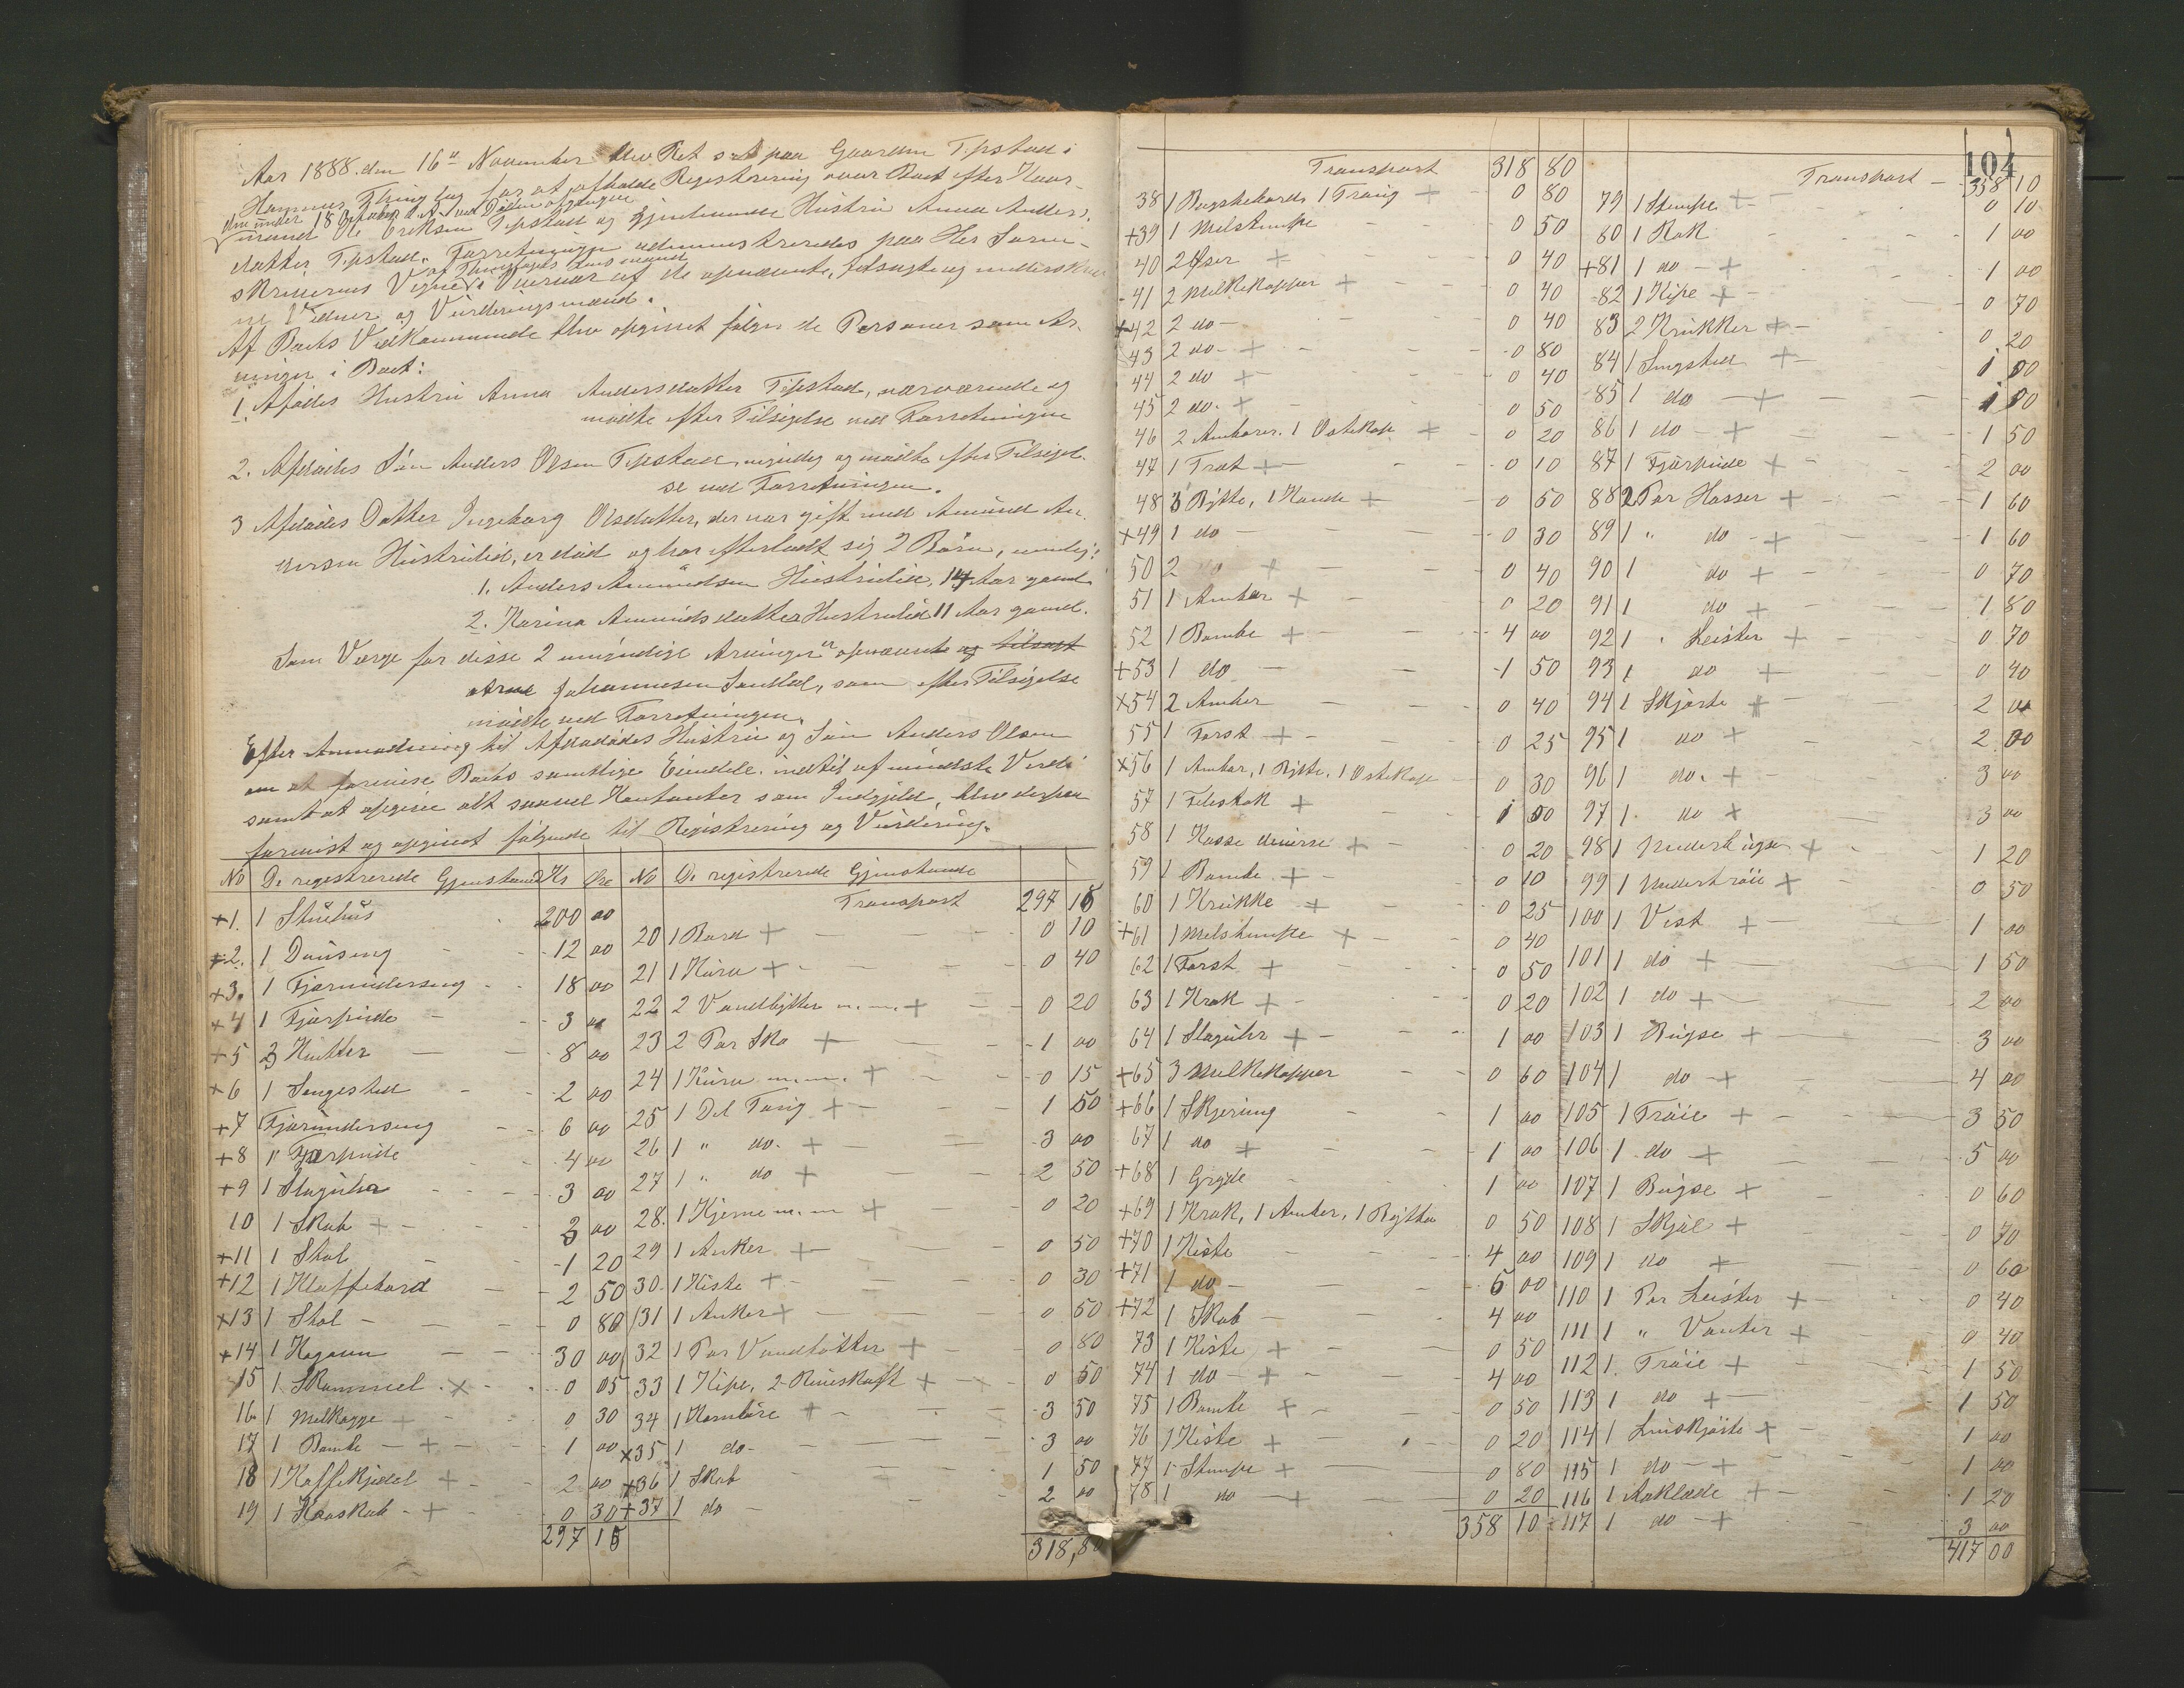 Aar 1888 den 16de November blev Ret sat paa Gaarden Tipstad i
Thinglag for at afholde Registrering over Boet efter
den under 18 Oktober d. A. ved Døden afgangne
mand Ole Eriksen Tipstad og gjenlevende Hustru Anna Anders-
datter Tipstad. Forretningen administreredes paa Hr Soren-
skriverens Vegne i Nærvær af de opnævnte, tilsagte og underskrev
ne Vidner og Vurderingsmænd.
Af Boets Vedkommende blev opgivet følgende Personer som Ar-
vinger i Boet:
1. Afdødes Hustru Anna Andersdatter Tipstad, nærværende og
mødte efter Tilsigelse ved Forretningen
2. Afdødes Søn Anders Olsen Tipstad, myndig og mødte efter Tilsigel-
se ved Forretningen.
3 Afdødes Datter Ingeborg Olsdatter, der var gift med Amund An-
dersen Hustrulid, er død og har efterladt sig 2 Børn, nemlig:
1. Anders Amundsen Hustrulid, 14 Aar gaml
2. Karina Amundsdatter Hustrulid 11 Aar gaml.
Som Værge for disse 2 umyndige Arvinger er opnævnt og tilsagt
Arne Johannesen Sandlid, som efter Tilsigelse
mødte ved Forretningen.
Efter Anmodning til Afdødes Hustru og Søn Anders Olsen
om at forevise Boets samtlige Eiendele indtil af mindste Værdi
samt at opgive alt saavel Kontanter som Indgjeld, blev derpaa
forevist og opgivet følgende til Registrering og Vurdering.
No De registrerede Gjenstande Kr Øre
+1. 1 Stuehus 200 00
+2. 1 Dunseng 12 00
+3. 1 Fjærunderseng 18 00
+4 1 Fjærpude 3 00
+5 3 8 00
+6 1 Sengested 2 00
+7 Fjærunderseng 6 00
+8 1 Fjærpude 4 00
+9 1 Slaguhr 3 00
10 1 Skab + 3 00
+11 1 Stol 1 20
+12 1 Klaffebord 2 50
+13 1 Stol 0 80
+14 1 Kogeovn 30 00
15 1 Skammel x 0 05
16 1 Melkagge + 0 30
17 1 Bomte + 1 00
18 1 Kaffekjedel + 2 00
19 1 Kaaskab + 0 30
297 15
No De registrerede Gjenstande
Transport 297 15
20 1 Bord + 0 10
21 1 Kurv + 0 40
22 2 Vandbytter m. m. + 0 20
23 2 Par Sko + 1 00
24 1 Kurv m.m. + 0 15
25 1 Del Tøiig + 1 50
26 1 " do. + 3 00
27 1 " do + 2 50
28. 1 Kjerne m. m + 0 20
29 1 Anker + 0 50
30. 1 Kiste + 0 30
31 1 Anker + 0 50
32 1 Par Vandbøtter + 0 80
33 1 Kipe, 2 + 0 50
34 1 Korntøre + 3 50
x35 1 do 3 00
+36 1 Skab 1 50
+37 1 do 2 00
318,80
Transport 318 80
38 1 Bagstebord, 1 Traug + 0 80
+39 1 Melstumpe 0 50
40 2 Øser + 0 40
41 2 Melkekopper + 0 40
+42 2 do 0 40
43 2 do + 0 80
44 2 do + 0 40
45 2 do. + 0 50
46 2 Ambarer. 1 Ostekop + 0 20
47 1 Trat + 0 10
48 3 Bytte, 1 Kande + 0 50
+49 1 do 0 30
50 2 do + 0 40
51 1 Ambar + 0 20
52 1 Bomte + 4 00
+53 1 do 1 50
x54 2 Amber 0 40
55 1 Forst + 0 25
x56 1 Ambar, 1 Bytte, 1 Ostekop 0 30
57 1 Filestok + 1 00
58 1 Kasse diverse + 0 20
59 1 Bomte + 0 10
60 1 Krukke + 0 25
+61 1 Melstumpe + 0 40
62 1 Forst + 0 50
63 1 Krak + 0 20
64 1 Slaguhr + 1 00
+65 3 Melkekopper 0 60
+66 1 Skjering 1 00
67 1 do + 1 00
+68 1 Gryde 1 00
+69 1 Krak, 1 Amber, 1 Bytte 0 50
+70 1 Kiste 4 00
+71 1 do 6 00
+72 1 Skab 4 00
73 1 Kiste + 0 50
74 1 do + 4 00
75 1 Bomte + 0 50
76 1 Kiste + 0 20
77 1 Stumpe + 0 80
78 1 do + 0 20
358 10
104
Transport 358 10
79 1 Stumpe + 0 10
80 1 Rok 1 00
+81 1 do + 1 00
82 1 Kipe + 0 70
83 2 Krukker + 0 20
84 1 Sengsted + 1 00
85 1 do + 1 00
86 1 do + 1 50
87 1 Fjærpude + 2 00
88 2 Par Hosser + 1 60
89 1 " do + 1 60
90 1 do + 0 70
91 1 do + 1 80
92 1 " Leister + 0 70
93 1 do + 0 40
94 1 Skjorte + 2 00
95 1 do + 2 00
96 1 do. + 3 00
97 1 do + 3 00
98 1 Underbugse + 1 20
99 1 Undertrøie + 0 50
100 1 Vest + 1 00
101 1 do + 1 50
102 1 do + 2 00
103 1 Bugse + 3 00
104 1 do + 4 00
105 1 Trøie + 3 50
106 1 do + 5 00
107 1 Bugse + 0 60
108 1 Skjæl + 0 70
109 1 do + 0 60
110 1 Par Leister + 0 40
111 1 " Vanter + 0 40
112 1 Trøie + 1 50
113 1 do + 1 50
114 1 Linskjorte + 1 00
115 1 do + 1 00
116 1 Aaklæde + 1 20
117 1 do + 3 00
417 00